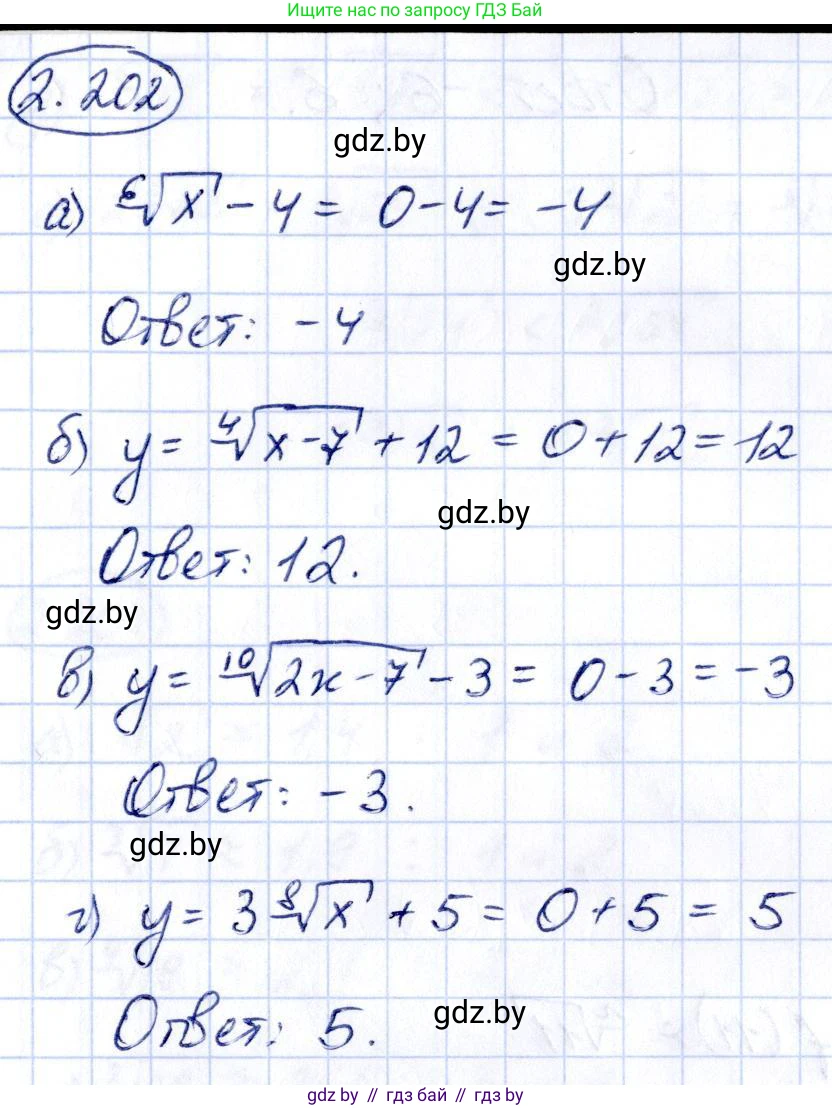 Ищите нас по запросу ГДЗ Бай
2.202
gdz.by
а) ⁶√x - 4 = 0 - 4 = -4
gdz.by
Ответ: -4
б) y = ⁴√(x-7) + 12 = 0 + 12 = 12
gdz.by
Ответ: 12.
gdz.by
в) y = ¹⁰√(2x-7) - 3 = 0 - 3 = -3
Ответ: -3.
gdz.by
г) y = 3 ⁸√x + 5 = 0 + 5 = 5
Ответ: 5.
gdz.by
gdz by // гдз бай // gdz by